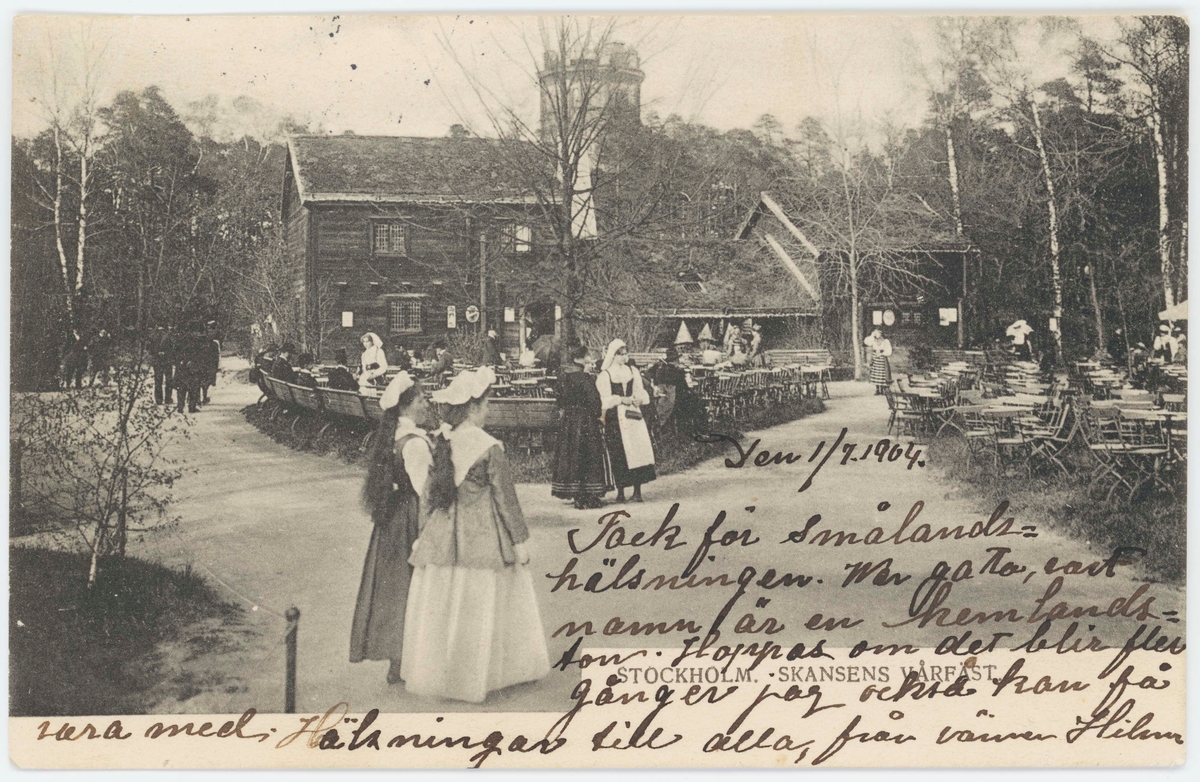 Den 1/7.1904.
Tack för Smålands=
hälsningen. Wer gata, vart
namn är en hemlands=
ton. Hoppas om det blir fler
STOCKHOLM. SKANSENS VÅRFÄST.
gånger jag också kan få
vara med. Hälsningar till alla, från vännen Hilma